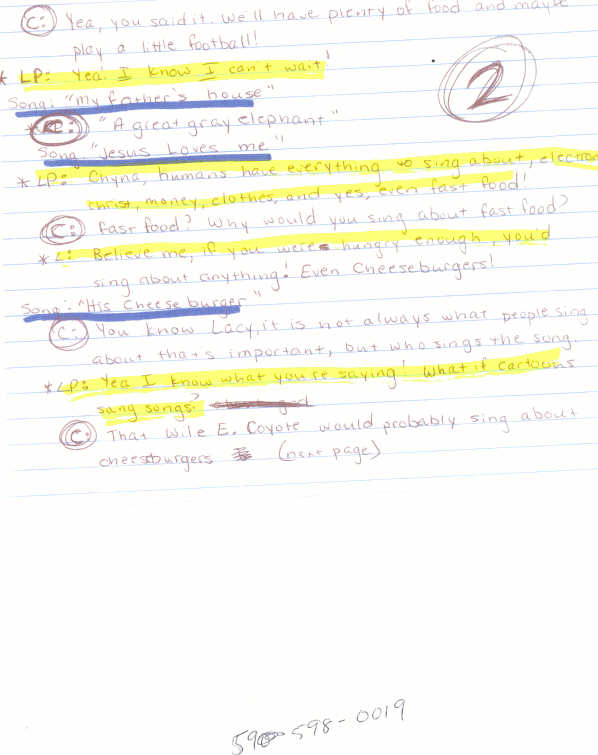 C: Yea, you said it. We'll have plenty of food and maybe
play a little football!
* LP: Yea! I know I can't wait!
Song: "My father's house"
C: "A great gray elephant"
Song "Jesus Loves me"
* LP: Chyna, humans have everything to sing about, electron
christ, money, clothes, and yes, even fast food!
C: Fast food? Why would you sing about fast food?
* L: Believe me, if you were hungry enough, you'd
sing about anything! Even Cheeseburgers!
Song: "His Cheeseburger"
C: You know Lacy, it is not always what people sing
about that's important, but who sings the song.
* LP: Yea I know what you're saying! What if cartoons
sang songs?
C: That Wile E. Coyote would probably sing about
cheeseburgers (next page)
2
598-0019